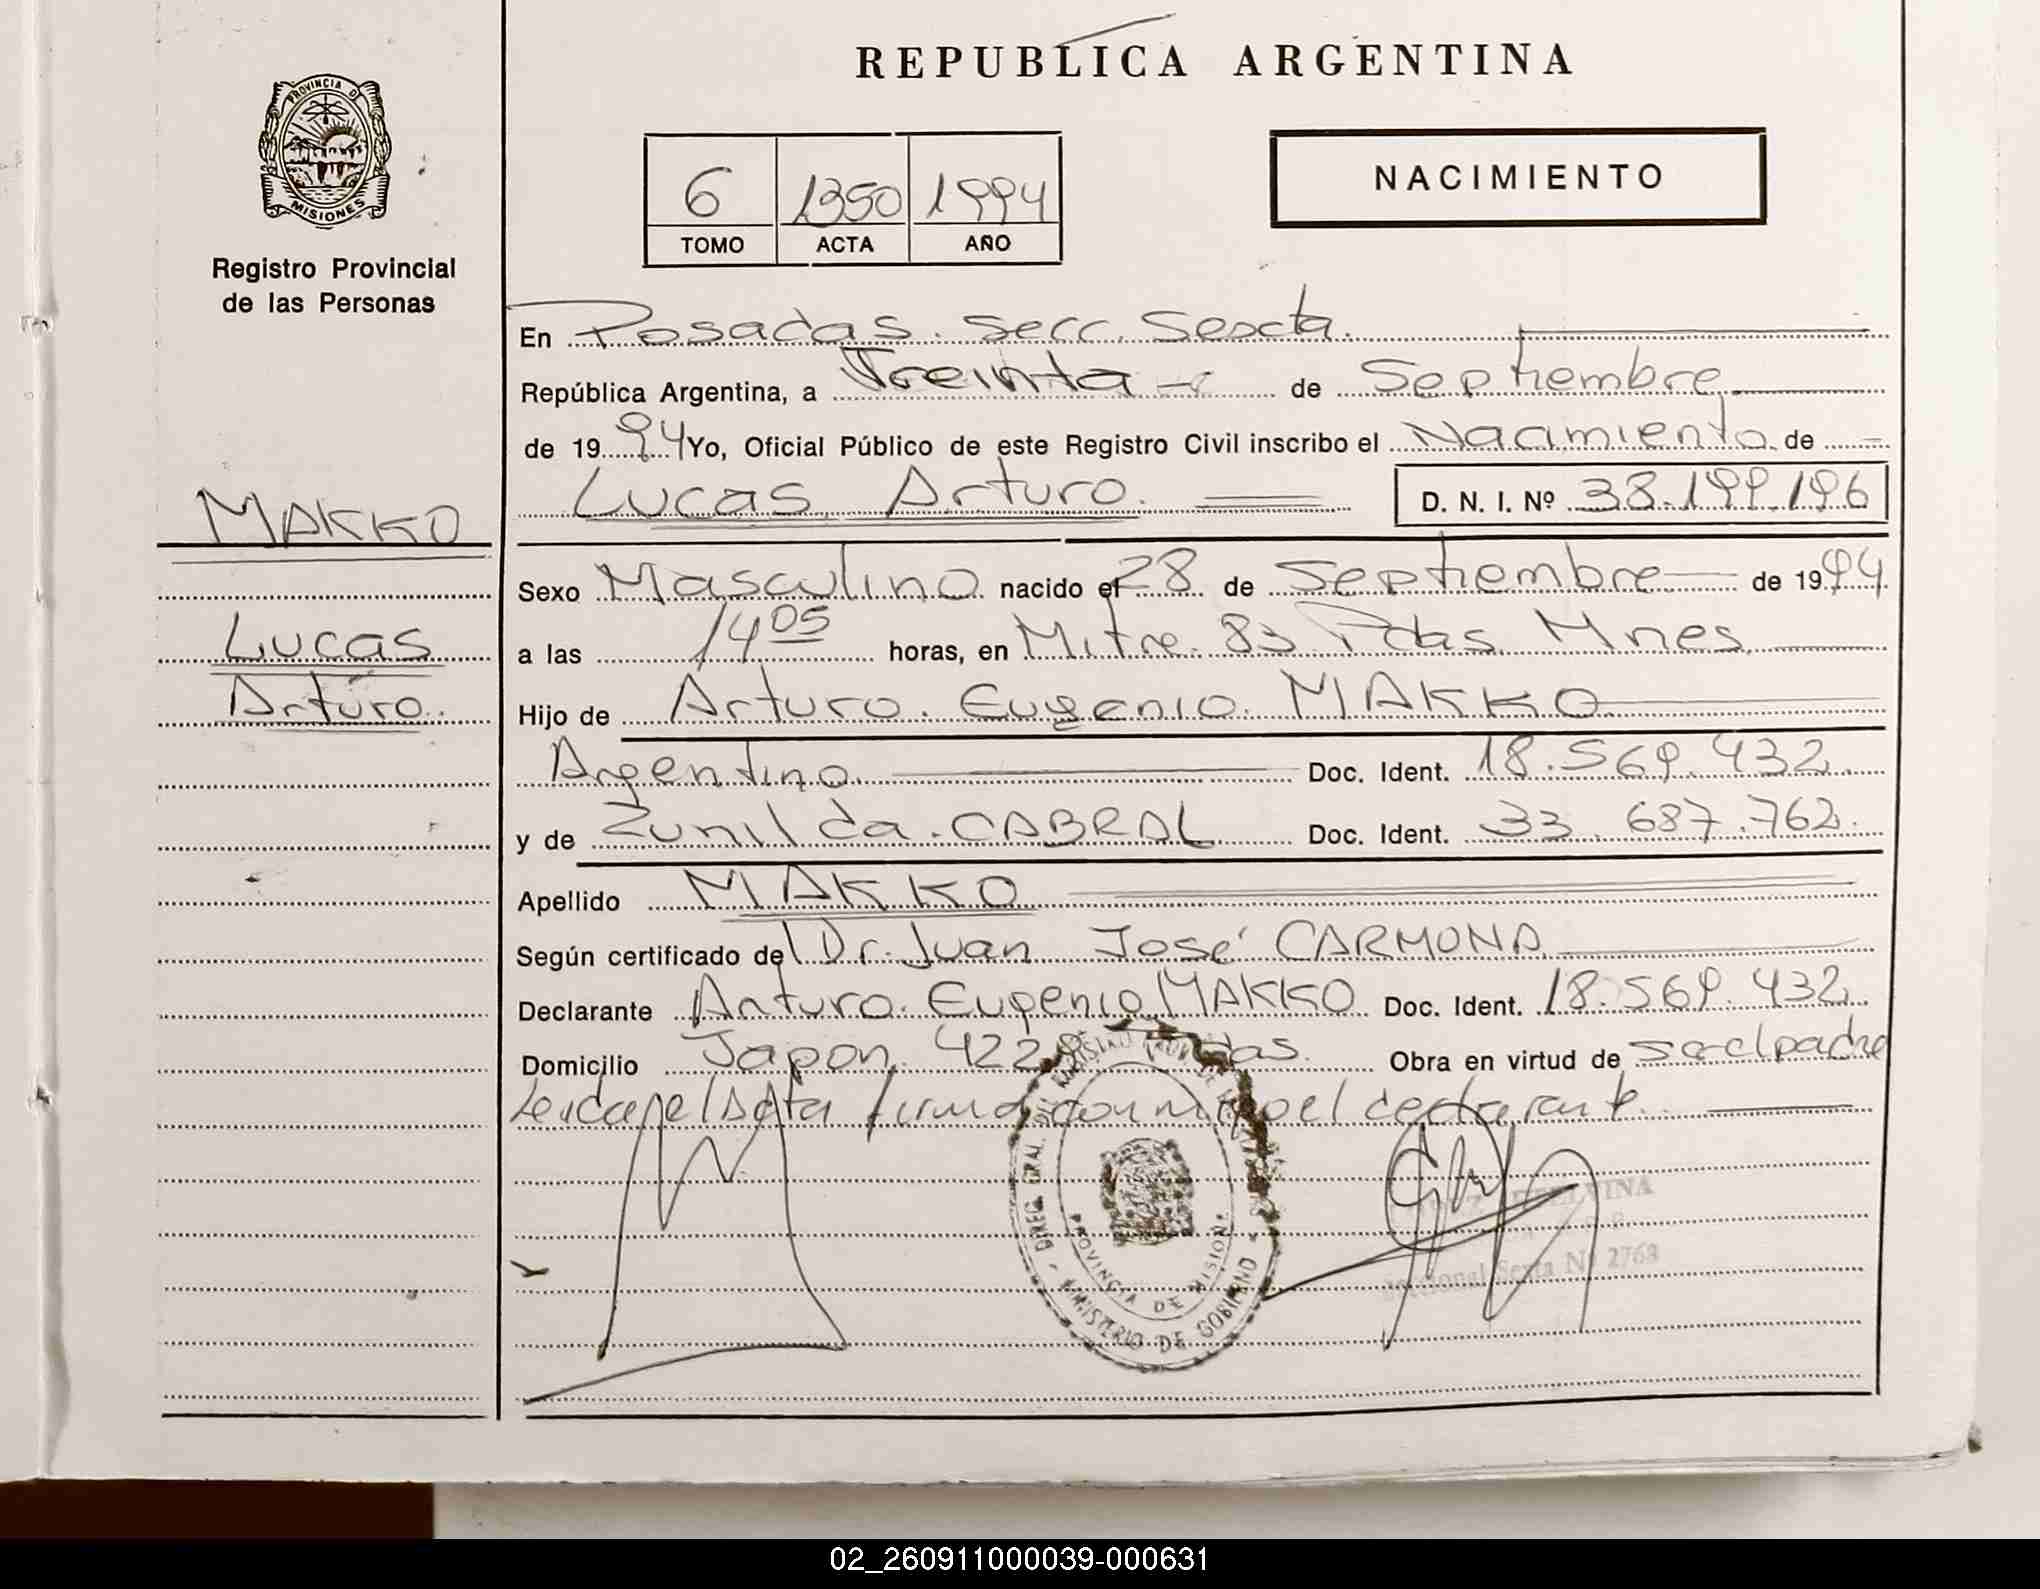 REPUBLICA ARGENTINA
PROVINCIA D
MISIONES
Registro Provincial
de las Personas
6 1350 1994
TOMO ACTA AÑO
NACIMIENTO
En Posadas. Secc. Sexta.
República Argentina, a Treinta de Septiembre
de 1994 Yo, Oficial Público de este Registro Civil inscribo el Nacimiento de
Lucas Arturo. D. N. I. Nº 38.199.196
MAKKO
Sexo Masculino nacido el 28 de Septiembre de 1994
Lucas
a las 14 05 horas, en Mitre. 83 Pdas Mnes
Arturo.
Hijo de Arturo. Eugenio. MAKKO
Argentino Doc. Ident. 18.569.432.
y de Zunilda. CABRAL Doc. Ident. 33.687.762.
Apellido MAKKO
Según certificado de Dr. Juan José CARMONA
Declarante Arturo. Eugenio MAKKO Doc. Ident. 18.569.432
Domicilio Japon. Obra en virtud de
firma el declarante
DIREC. GRAL.
PROVINCIA DE MISIONES
MINISTERIO DE GOBIERNO
Sexta Nº 2768
02_260911000039-000631